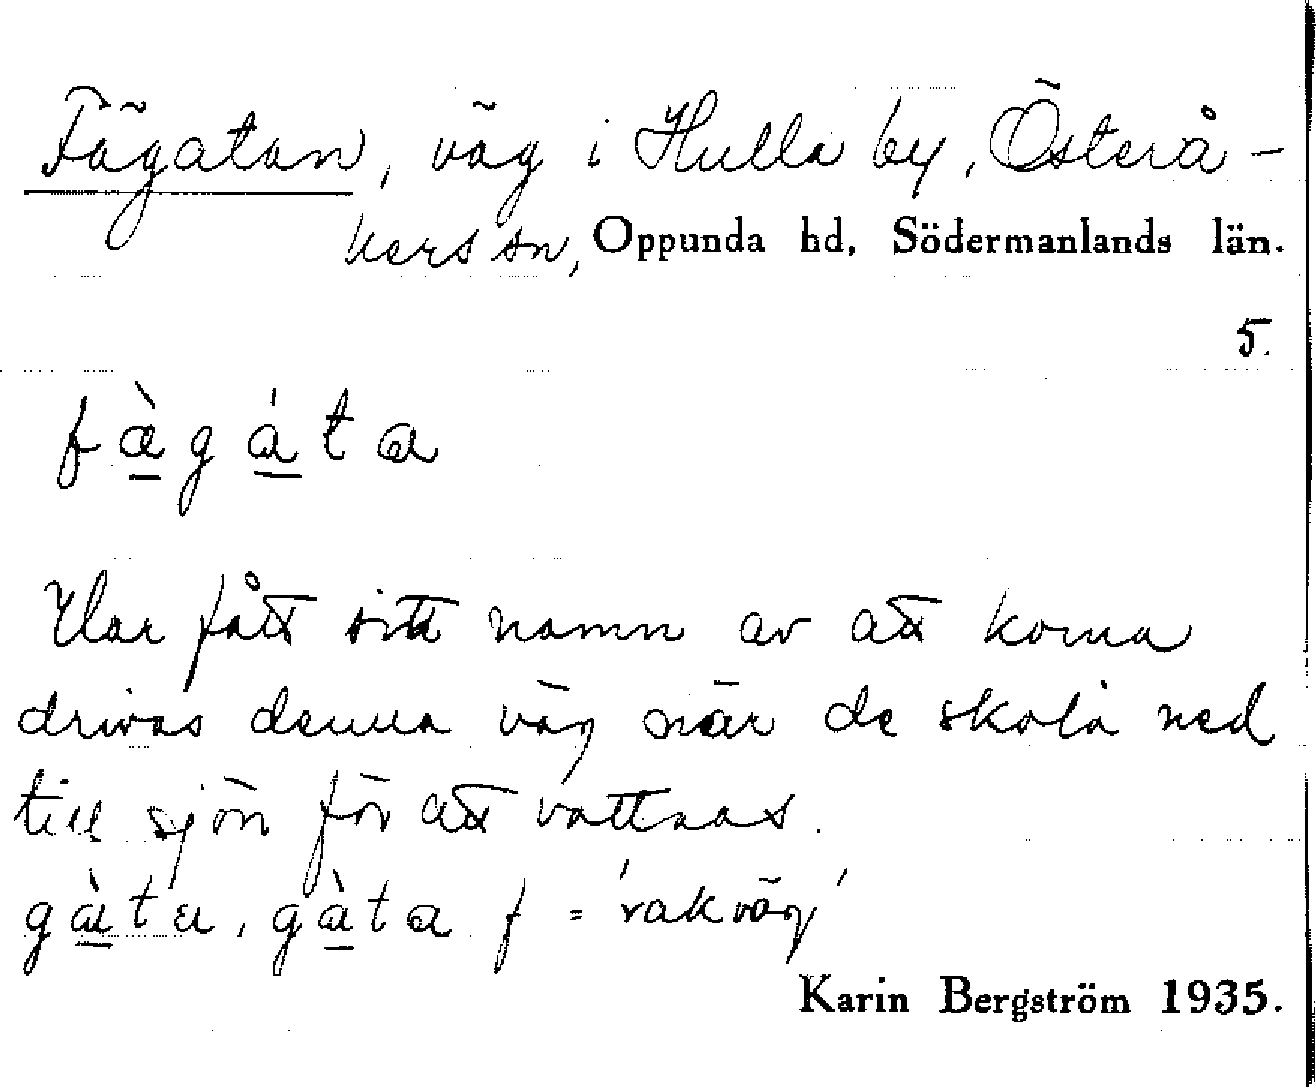 Fägatan, väg i Hulla by, Österå-
kers sn, Oppunda hd, Södermanlands län.
5.
fæ̀gáta
Har fått sitt namn av att korna
drivas denna väg när de skola ned
till sjön för att vattnas.
gàtu, gàta f = 'rak väg'
Karin Bergström 1935.